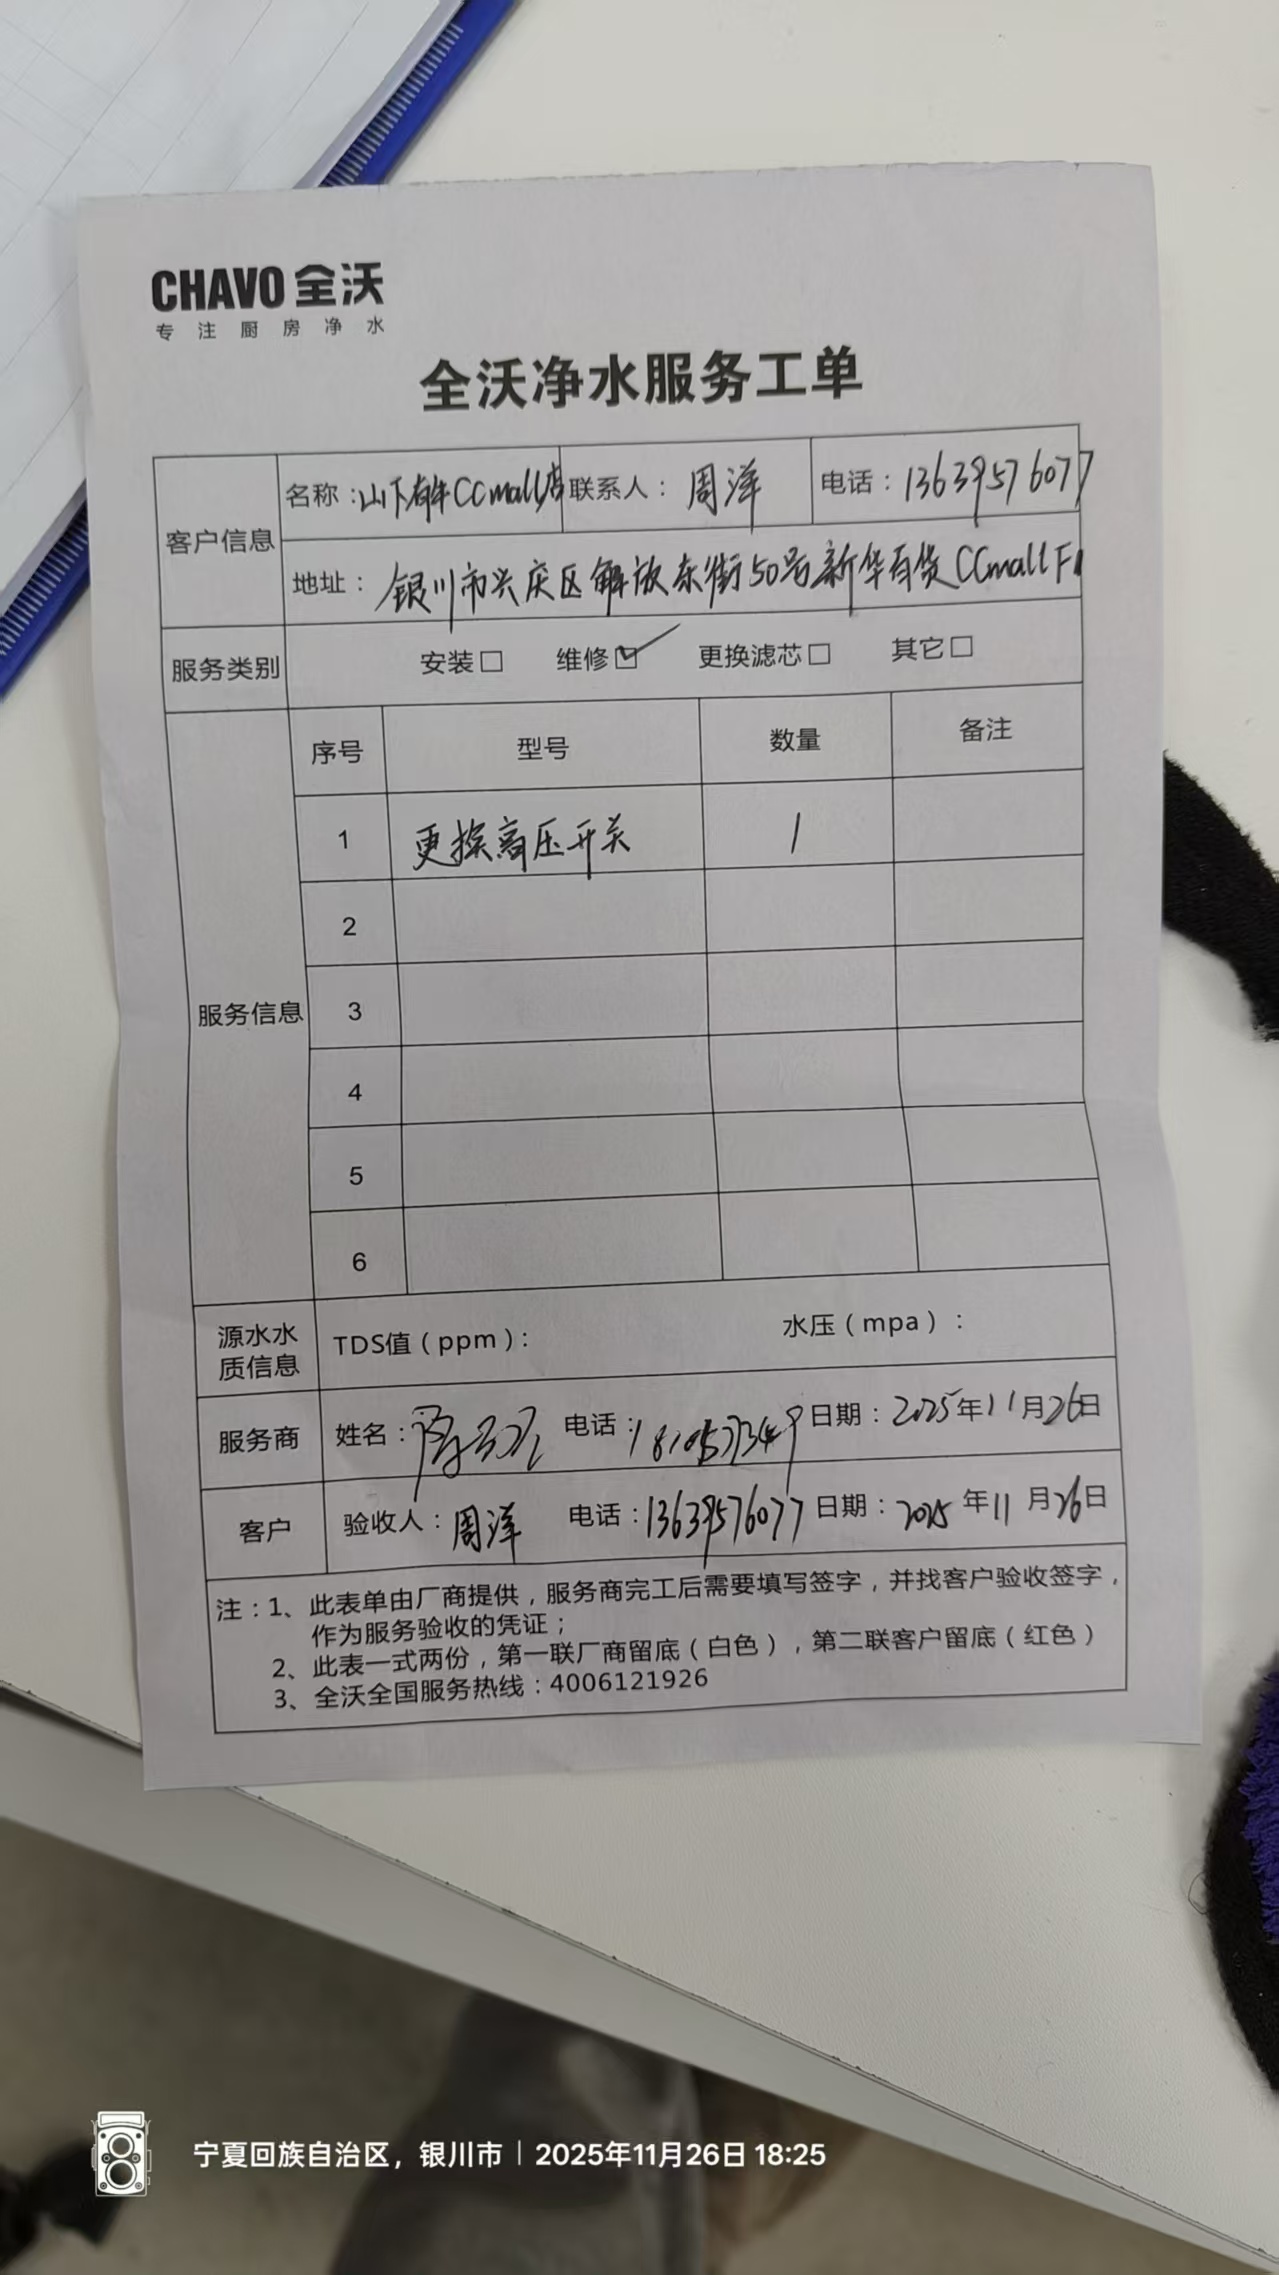 CHAVO 全沃
专注厨房净水
全沃净水服务工单
客户信息
名称：山下有牛CCmall店 联系人：周洋 电话：13639576077
地址：银川市兴庆区解放东街50号新华百货CCmall F1
服务类别 安装□ 维修☑ 更换滤芯□ 其它□
服务信息
序号 型号 数量 备注
1 更换高压开关 1
2
3
4
5
6
源水水质信息 TDS值（ppm）： 水压（mpa）：
服务商 姓名： 电话： 日期：2025年11月26日
客户 验收人：周洋 电话：13639576077 日期：2025年11月26日
注：1、此表单由厂商提供，服务商完工后需要填写签字，并找客户验收签字，
作为服务验收的凭证；
2、此表一式两份，第一联厂商留底（白色），第二联客户留底（红色）
3、全沃全国服务热线：4006121926
宁夏回族自治区，银川市｜2025年11月26日 18:25